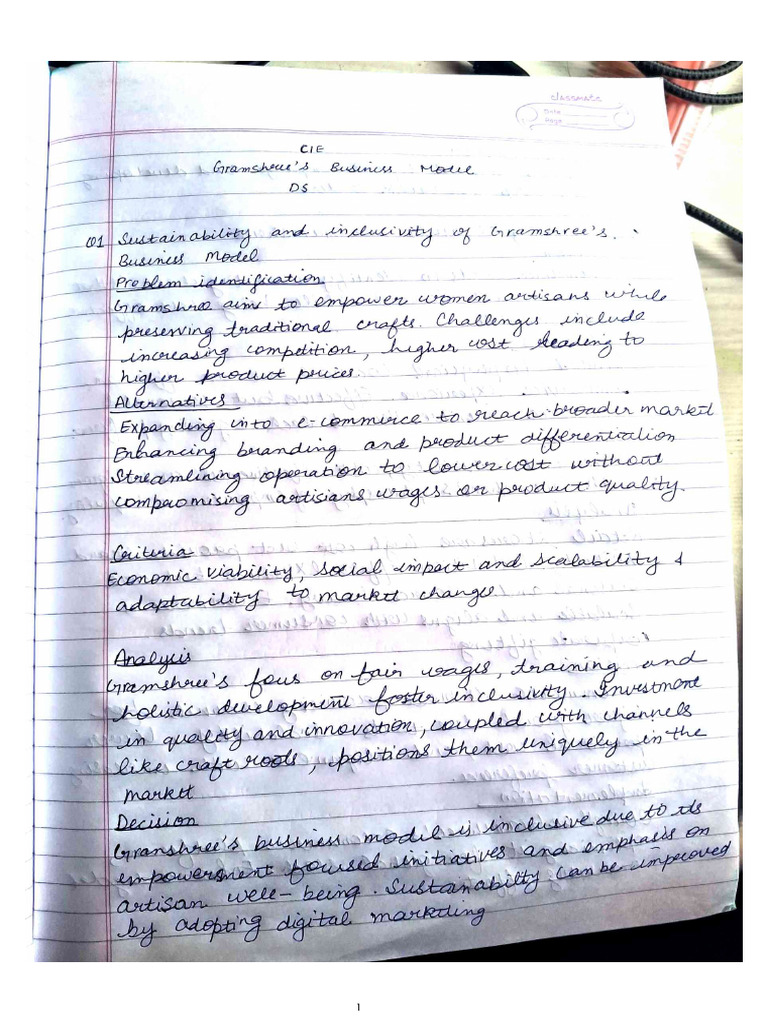 classmate
Date
Page
CIE
Gramshree's Business Model
DS
Q1 Sustainability and inclusivity of Gramshree's
Business Model
Problem identification
Gramshree aim to empower women artisans while
preserving traditional crafts. Challenges include
increasing competition, higher cost leading to
higher product prices.
Alternatives
Expanding into e-commerce to reach broader market
Enhancing branding and product differentiation
Streamlining operation to lower cost without
compromising artisians wages or product quality.
Criteria
Economic viability, social impact and scalability &
adaptability to market changes
Analysis
Gramshree's focus on fair wages, training and
holistic development foster inclusivity. Investment
in quality and innovation, coupled with channels
like craft roots, positions them uniquely in the
market
Decision
Gramshree's business model is inclusive due to its
empowerment focused initiatives and emphasis on
artisan well-being. Sustainability can be improved
by adopting digital marketing
1